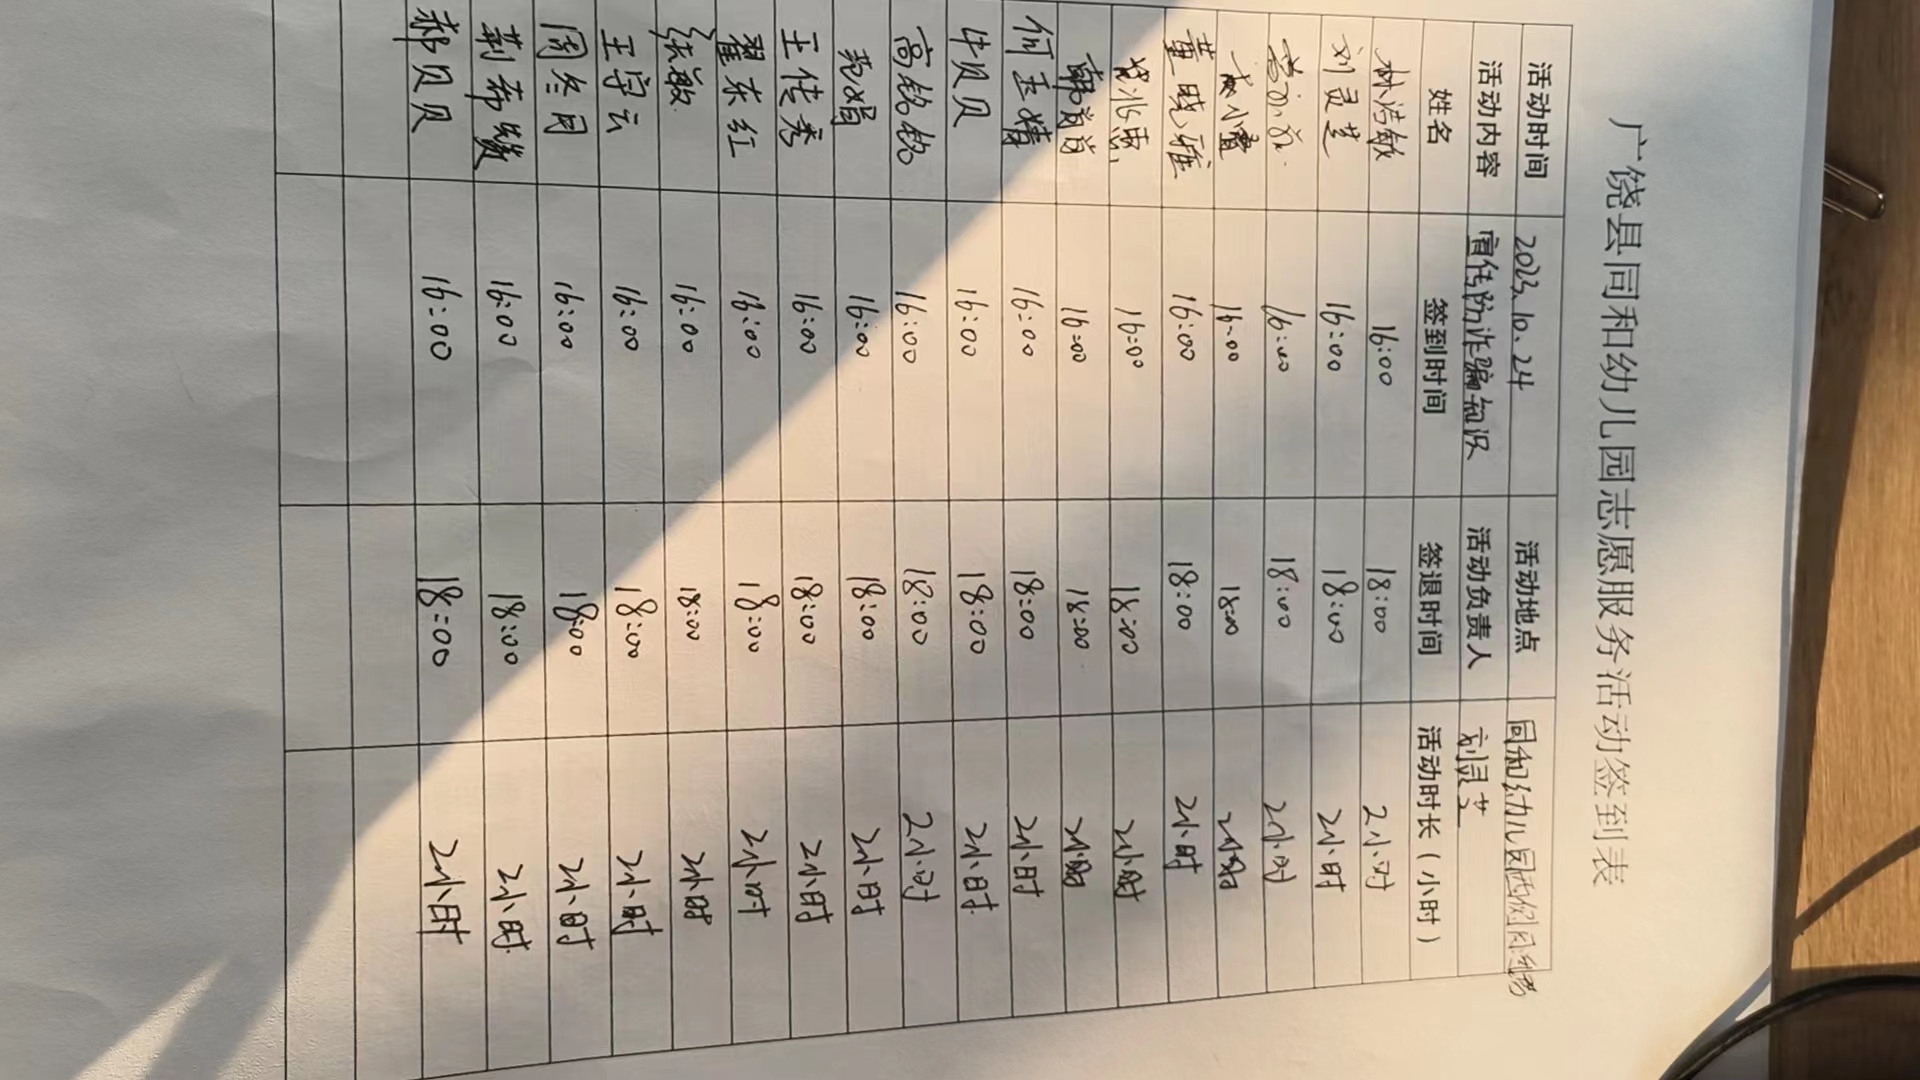 广饶县同和幼儿园志愿服务活动签到表
活动时间 2023.10.24 活动地点 同和幼儿园
活动内容 宣传防诈骗知识 活动负责人 刘灵芝
姓名 签到时间 签退时间 活动时长（小时）
林洁敏 16:00 18:00 2小时
刘灵芝 16:00 18:00 2小时
16:00 18:00 2小时
16:00 18:00 2小时
董晓雅 16:00 18:00 2小时
16:00 18:00 2小时
16:00 18:00 2小时
何孟婧 16:00 18:00 2小时
牛贝贝 16:00 18:00 2小时
高铭铭 16:00 18:00 2小时
范娟 16:00 18:00 2小时
王传秀 16:00 18:00 2小时
翟东红 16:00 18:00 2小时
张敏 16:00 18:00 2小时
王守云 16:00 18:00 2小时
周冬月 16:00 18:00 2小时
荆希媛 16:00 18:00 2小时
郝贝贝 16:00 18:00 2小时